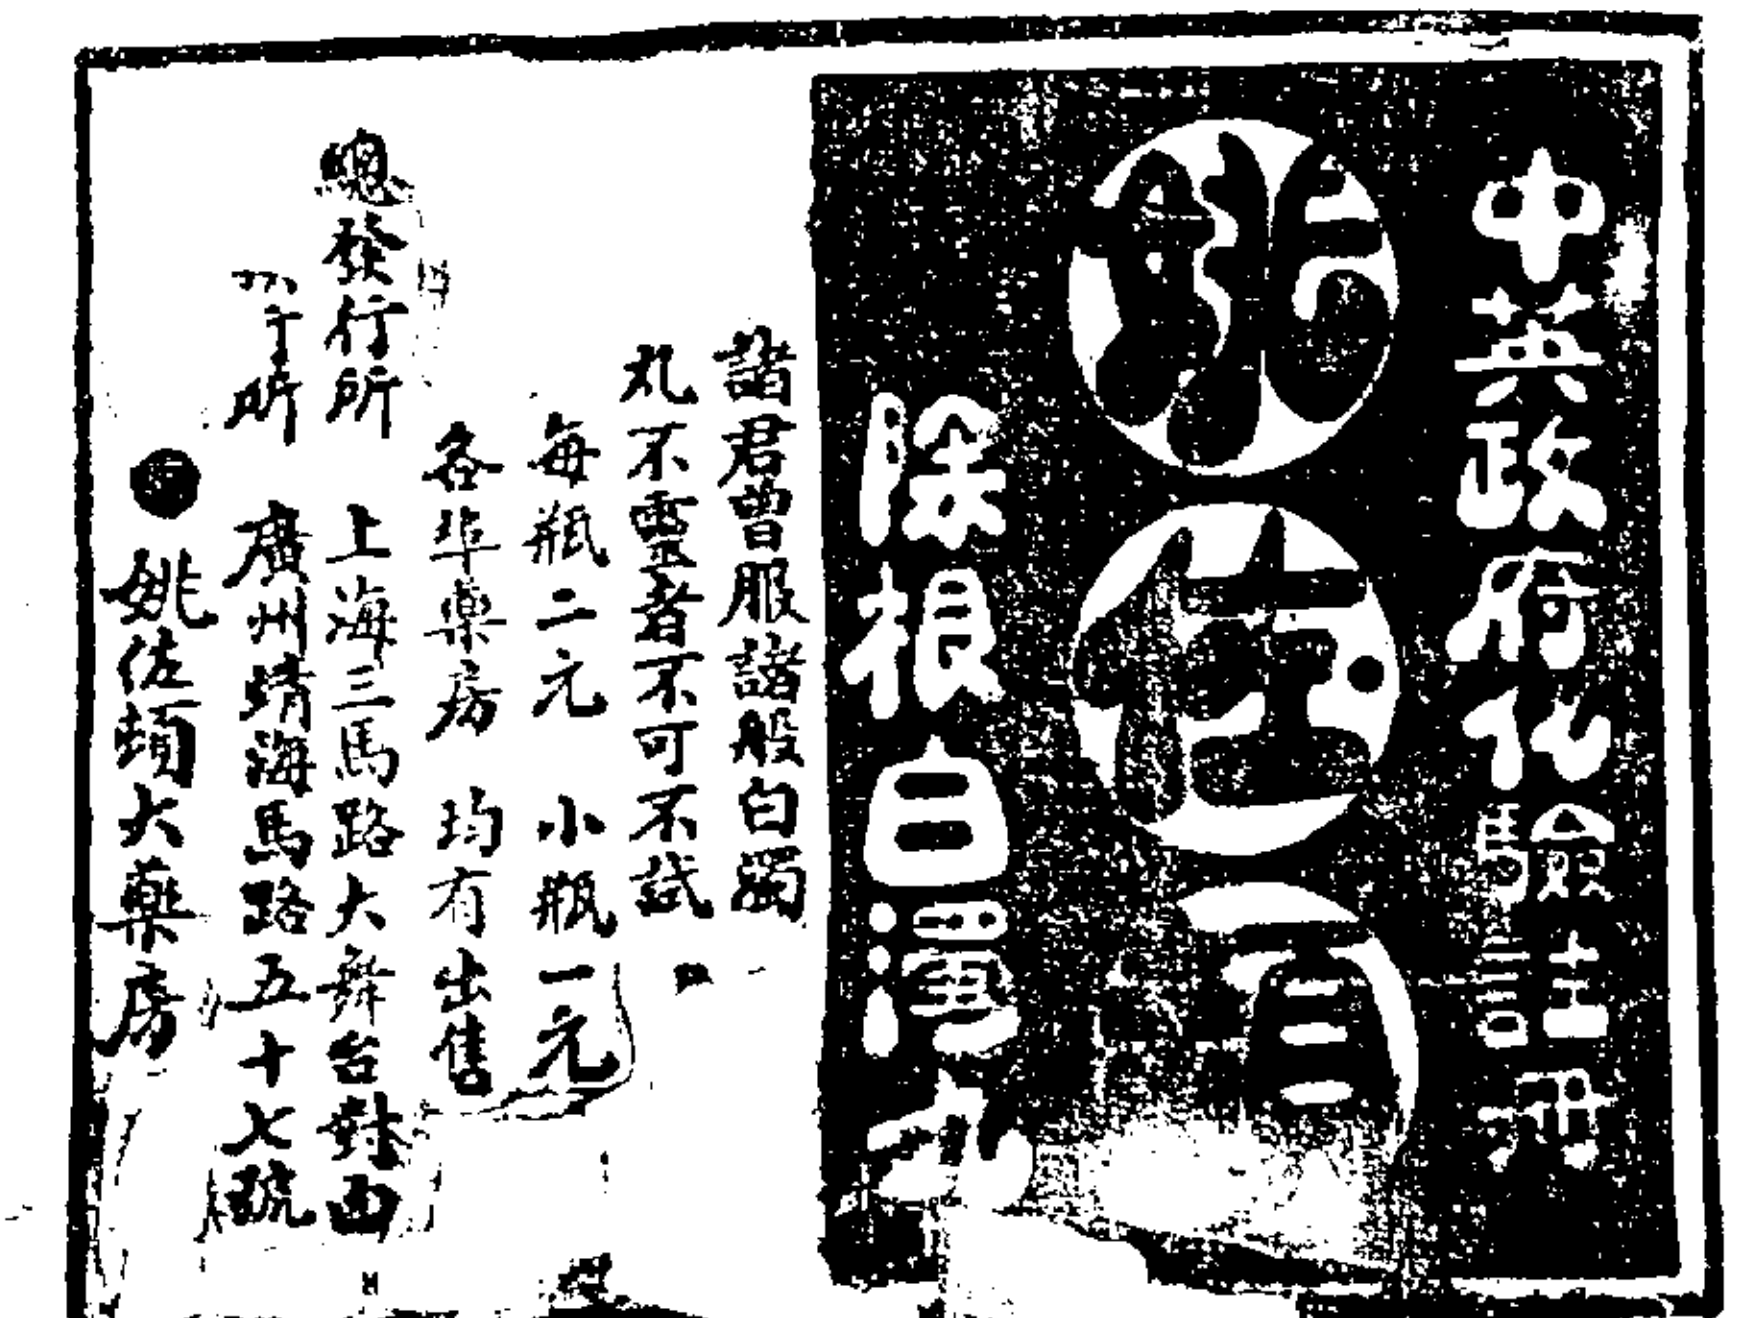 中英政府化驗註冊
姚佐頓
除根白濁丸
諸君曾服諸般白濁
丸不靈者不可不試
每瓶二元 小瓶一元
各埠藥房 均有出售
總發行所 上海三馬路大舞台對面
行所 廣州靖海馬路五十七號
姚佐頓大藥房